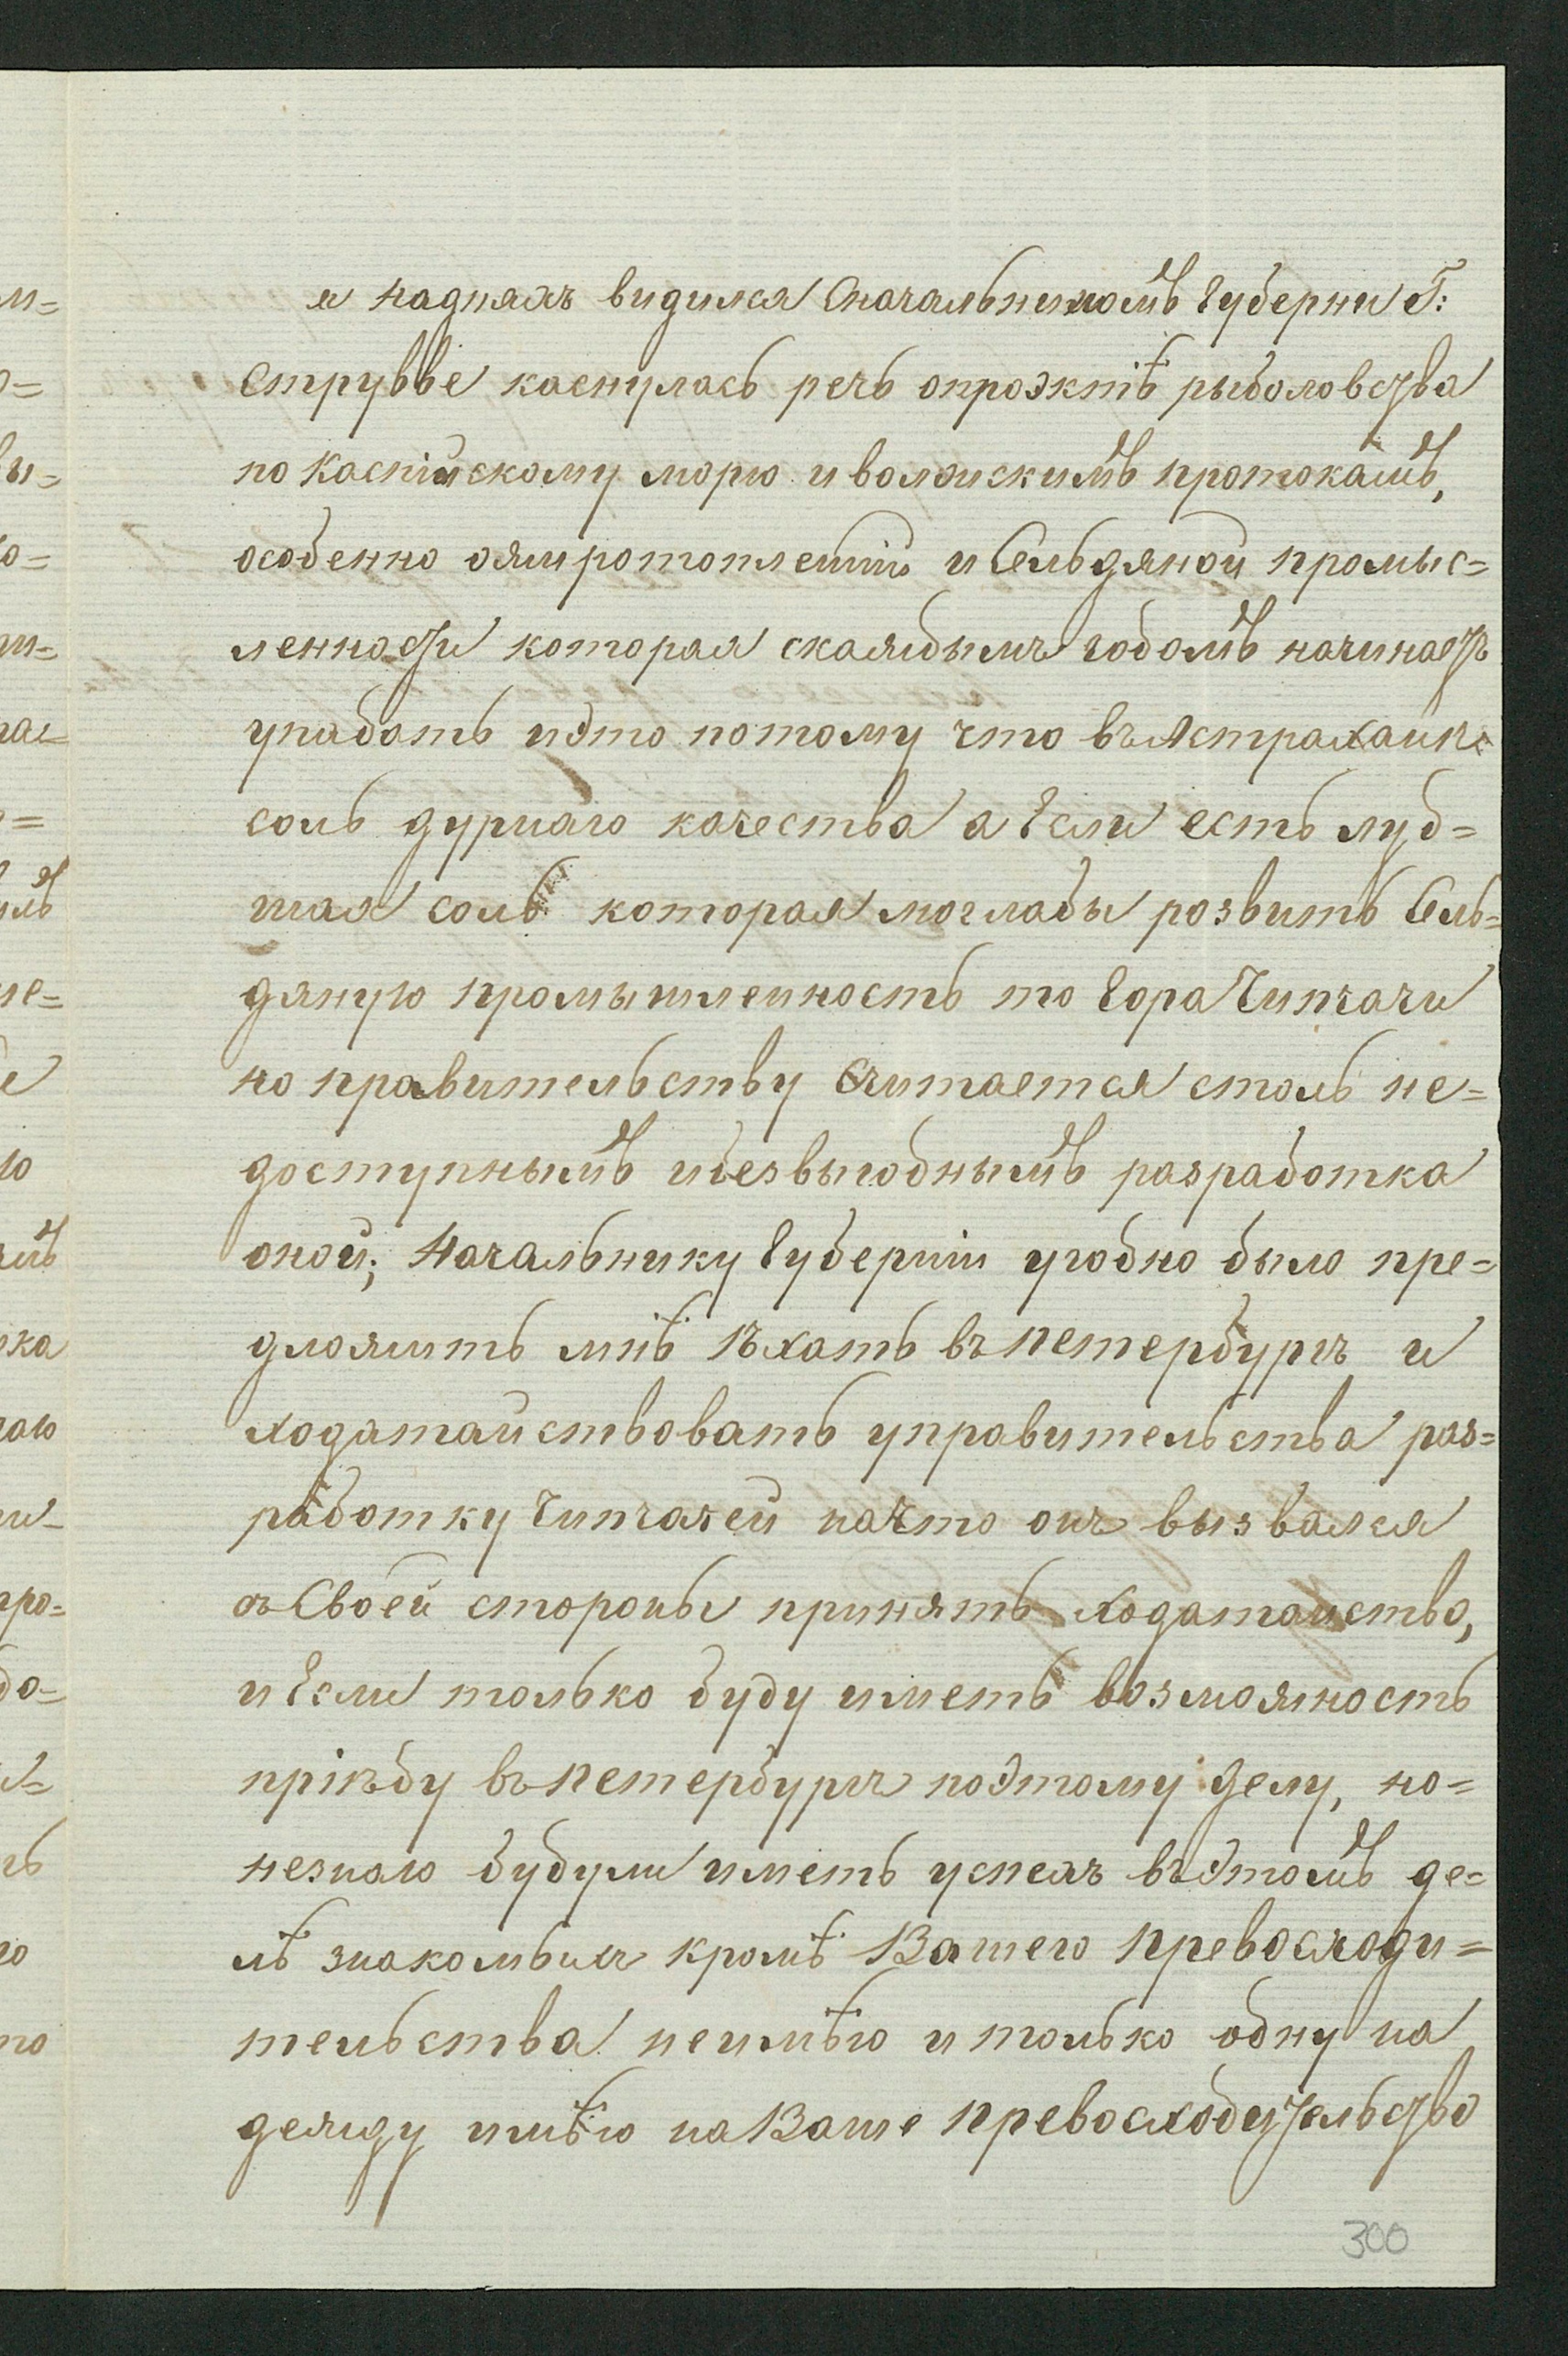 я надняхъ видился Сначальникомъ Губерни Г:
Струвве каснулась речь опроэктѣ рыболовства
по Каспійскому морю и волжскимъ протокамъ,
особенно ожиротоплении и Сельдяной промыс=
ленности которая скаждымъ годомъ начинаетъ
упадать иэто потому что въ Астрахани
соль дурнаго качества а Если есть луд=
шая соль которая моглабы розвить Сель=
дяную промышленность то Гора Чипчачи
но правительству Считается столь не=
доступнымъ ибезвыгоднымъ разработка
оной; Начальнику Губерніи угодно было пре=
дложить мнѣ ѣхать въ петербургъ и
ходатайствовать управительства раз=
работку Чипчачей начто онъ вызвался
съ Своей стороны принять ходатайство,
и Если только буду иметь возможность
пріѣду въ петербургъ поэтому делу, но=
незнаю будули иметь успехъ въэтомъ де=
лѣ знакомыхъ кромѣ Вашего превосходи=
тельства неимѣю и только одну на
дежду имѣю на Ваше превосходительство
300
ка